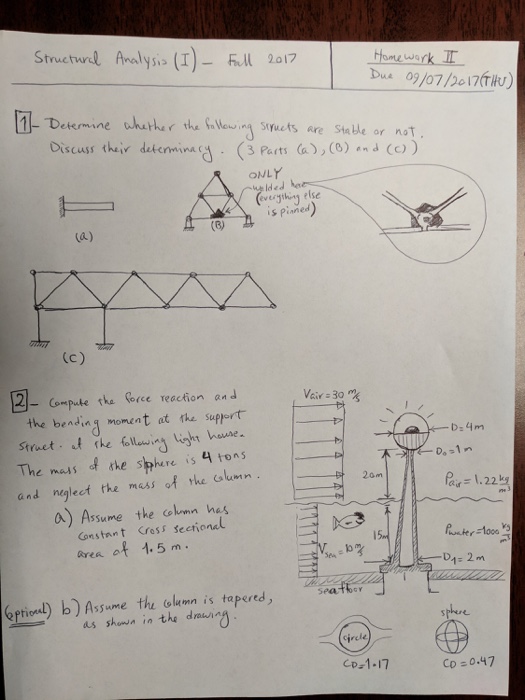 Structural Analysis (I) - Fall 2017
Homework II
Due 09/07/2017 (THU)
1- Determine whether the following structs are stable or not.
Discuss their determinacy. (3 Parts (a), (B) and (c))
ONLY
welded here
(everything else
is pinned)
(a)
(B)
(c)
2- Compute the force reaction and
the bending moment at the support
struct. of the following light house.
The mass of the sphere is 4 tons
and neglect the mass of the column.
a) Assume the column has
constant cross sectional
area of 1.5 m.
(optional) b) Assume the column is tapered,
as shown in the drawing.
Vair = 30 m/s
D = 4m
D₀ = 1m
20m
ρair = 1.22 kg/m³
15m
ρwater = 1000 kg/m³
Vsea = 10 m/s
D₁ = 2m
sea floor
circle
CD = 1.17
sphere
CD = 0.47